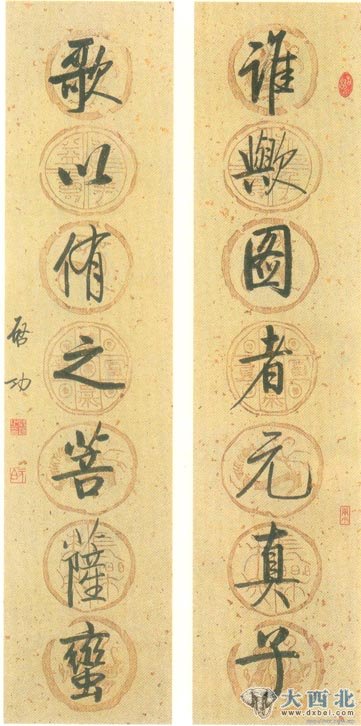 谁欤图者元真子
歌以侑之菩萨蛮
启功
大西北
www.dxbei.com